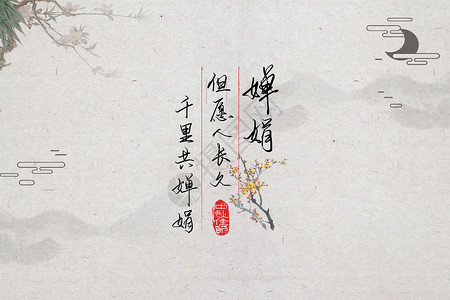 婵娟
但愿人长久
千里共婵娟